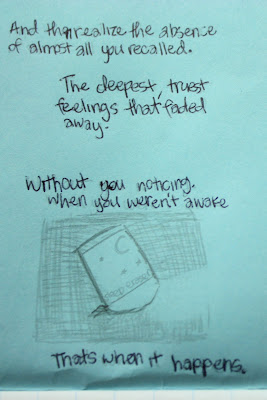 And then realize the absence
of almost all you recalled.
The deepest, truest
feelings that faded
away.
Without you noticing.
when you weren't awake
Thats when it happens.